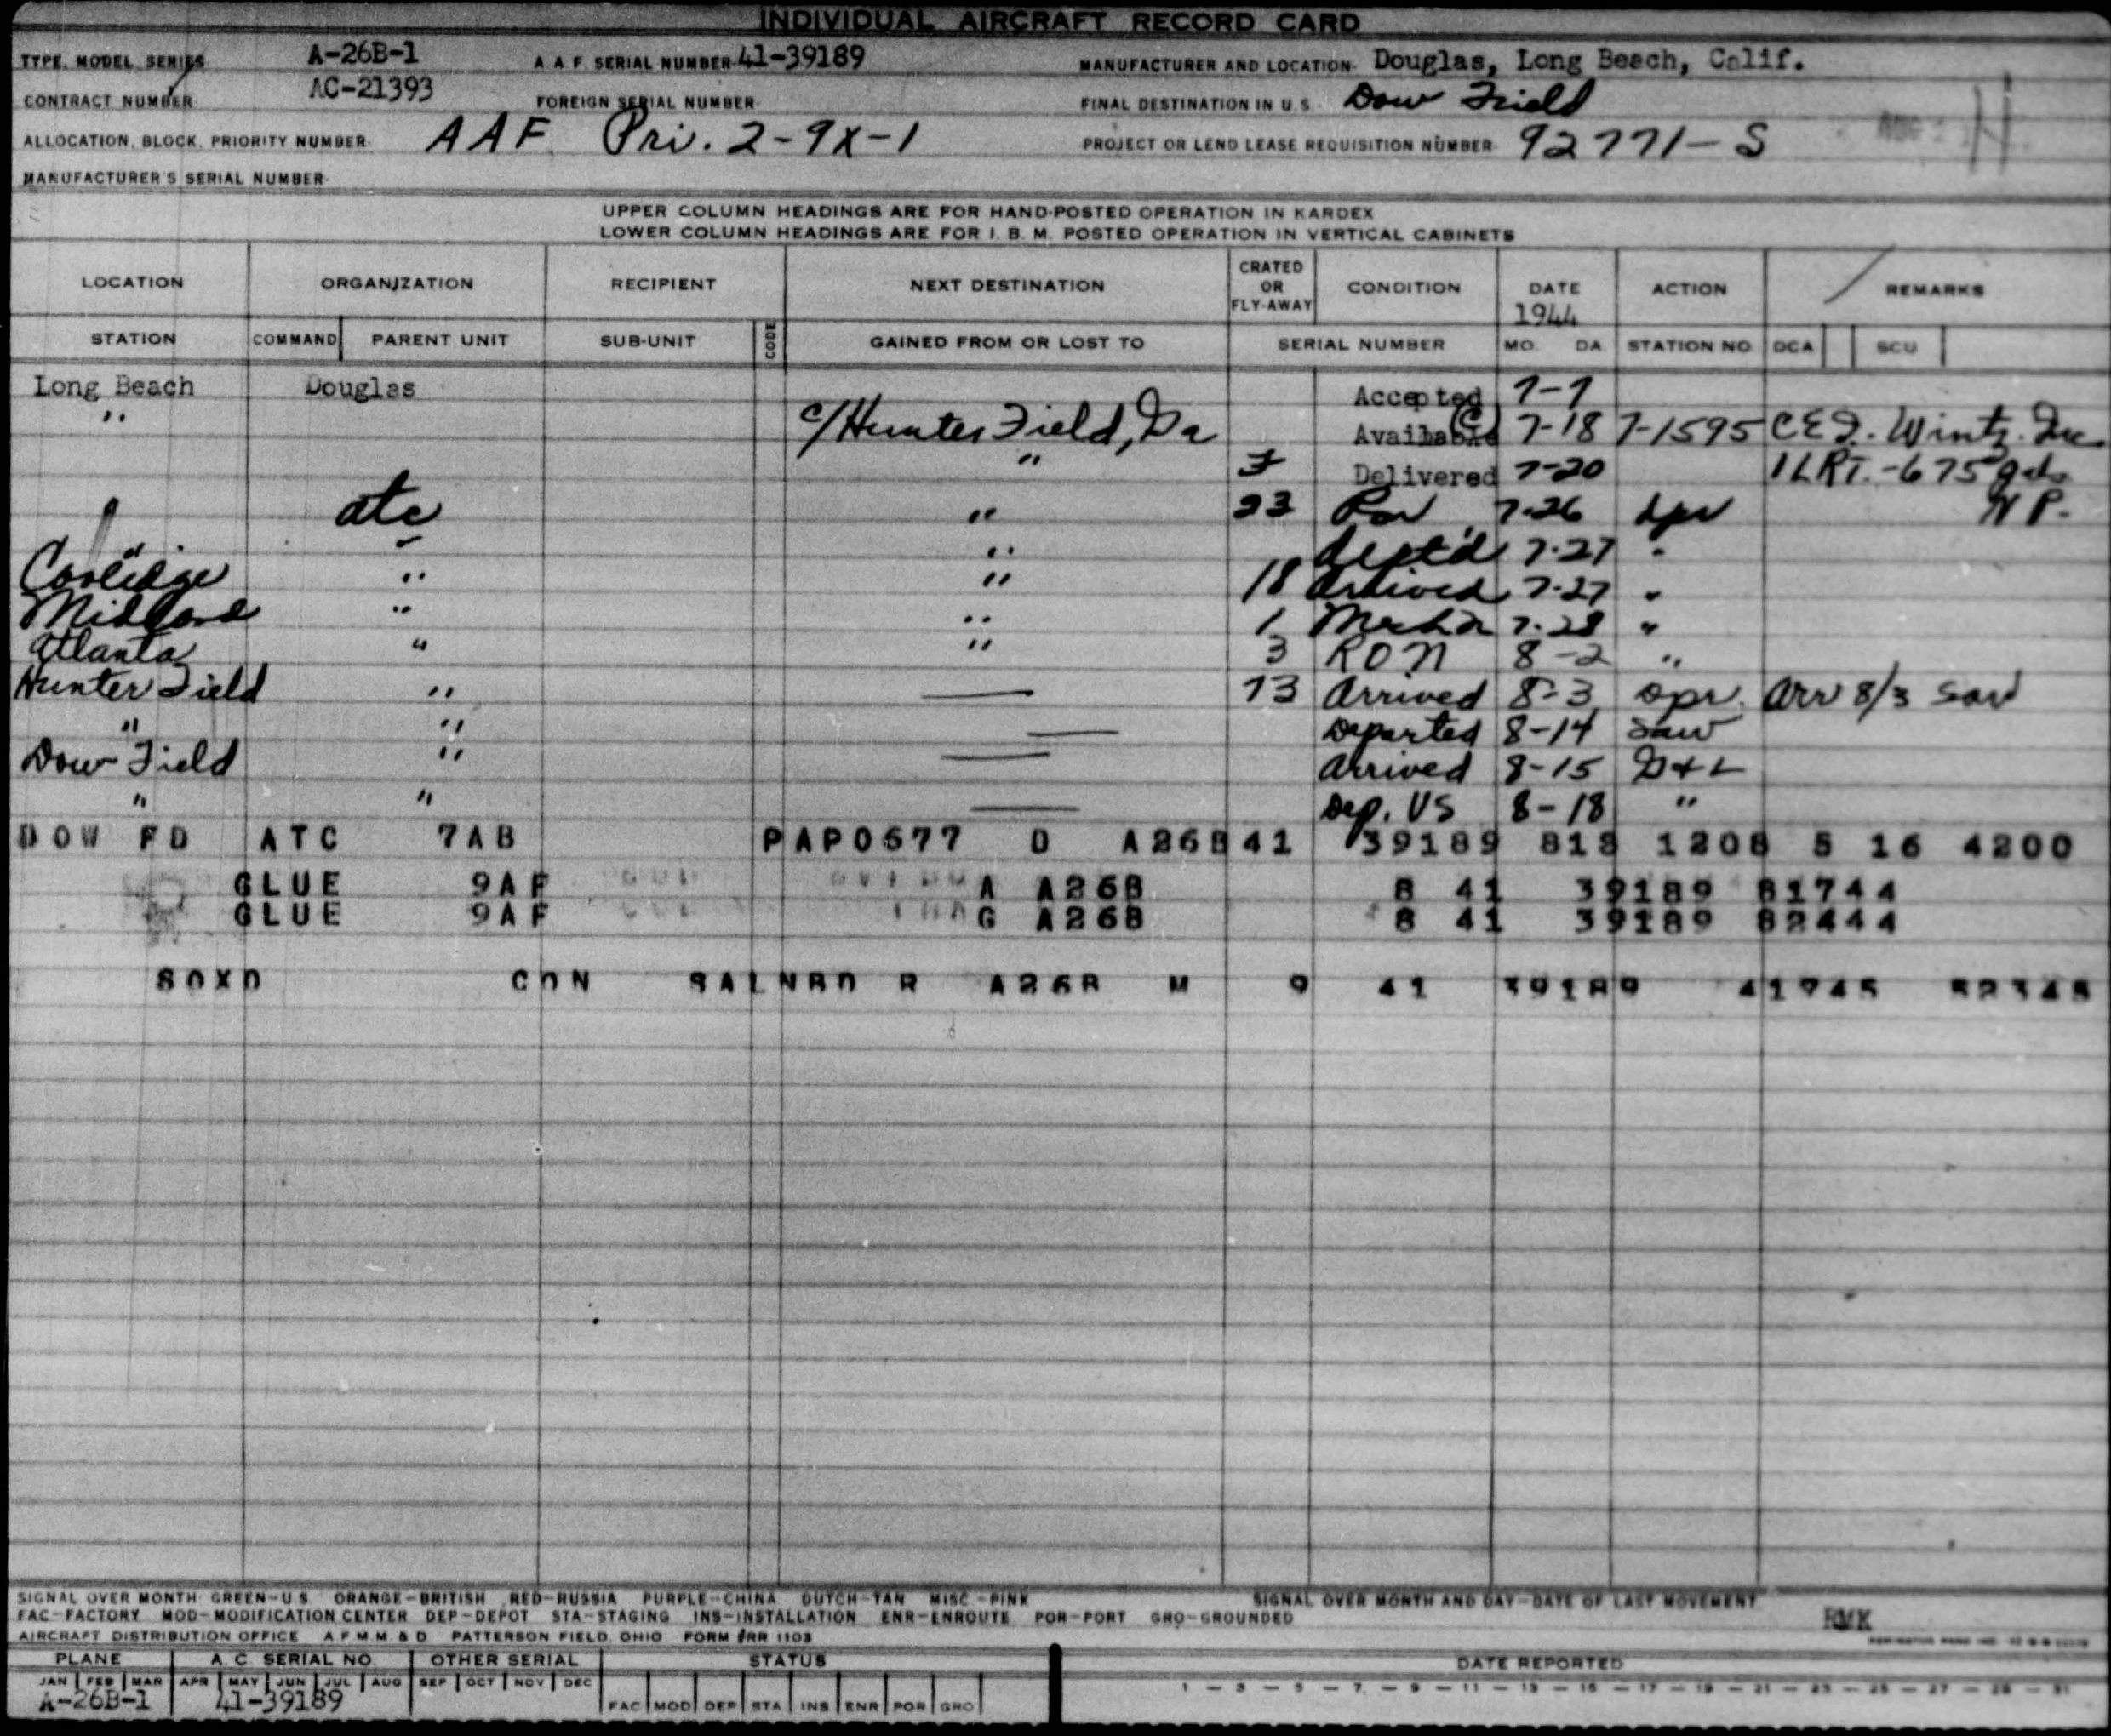 INDIVIDUAL AIRCRAFT RECORD CARD
TYPE, MODEL, SERIES A-26B-1 A A F. SERIAL NUMBER 41-39189 MANUFACTURER AND LOCATION Douglas, Long Beach, Calif.
CONTRACT NUMBER AC-21393 FOREIGN SERIAL NUMBER FINAL DESTINATION IN U.S. Dow Field
ALLOCATION, BLOCK, PRIORITY NUMBER AAF Pri. 2-9X-1 PROJECT OR LEND LEASE REQUISITION NUMBER 92771-S
MANUFACTURER'S SERIAL NUMBER
UPPER COLUMN HEADINGS ARE FOR HAND-POSTED OPERATION IN KARDEX
LOWER COLUMN HEADINGS ARE FOR I. B. M. POSTED OPERATION IN VERTICAL CABINETS
LOCATION ORGANIZATION RECIPIENT NEXT DESTINATION CRATED OR FLY-AWAY CONDITION DATE 1944 ACTION REMARKS
STATION COMMAND PARENT UNIT SUB-UNIT CODE GAINED FROM OR LOST TO SERIAL NUMBER MO. DA. STATION NO. DCA SCU
Long Beach Douglas Accepted 7-7
" c/Hunter Field, Ga Available (C) 7-18 7-1595 CED. Wintz. Inc.
" Delivered 7-20 1LRT.-675 gal
atc " 23 7-26 N P.
" " dept'd 7-27 "
Coolidge " " 18 arrived 7-27 "
Midland " " 1 Mech 7-28 "
Atlanta " " 3 RON 8-2 "
Hunter Field " — 13 Arrived 8-3 opr. arr 8/3 Sav
" " — Departed 8-14 Sav
Dow Field " — Arrived 8-15 D+L
" " — Dep. US 8-18 "
DOW FD ATC 7AB PAPO677 D A26B 41 39189 818 1208 5 16 4200
GLUE 9AF A A26B 8 41 39189 81744
GLUE 9AF G A26B 8 41 39189 82444
SOXO CON SALNBD R A26B M 9 41 39189 41745 52345
SIGNAL OVER MONTH GREEN-U.S. ORANGE-BRITISH RED-RUSSIA PURPLE-CHINA DUTCH-TAN MISC.-PINK SIGNAL OVER MONTH AND DAY-DATE OF LAST MOVEMENT
FAC-FACTORY MOD-MODIFICATION CENTER DEP-DEPOT STA-STAGING INS-INSTALLATION ENR-ENROUTE POR-PORT GRO-GROUNDED RMK
AIRCRAFT DISTRIBUTION OFFICE A.F.M.M.& D PATTERSON FIELD, OHIO FORM #RR 1103
PLANE A. C. SERIAL NO. OTHER SERIAL STATUS DATE REPORTED
JAN FEB MAR APR MAY JUN JUL AUG SEP OCT NOV DEC 1 - 3 - 5 - 7 - 9 - 11 - 13 - 15 - 17 - 19 - 21 - 23 - 25 - 27 - 29 - 31
A-26B-1 41-39189 FAC MOD DEP STA INS ENR POR GRO